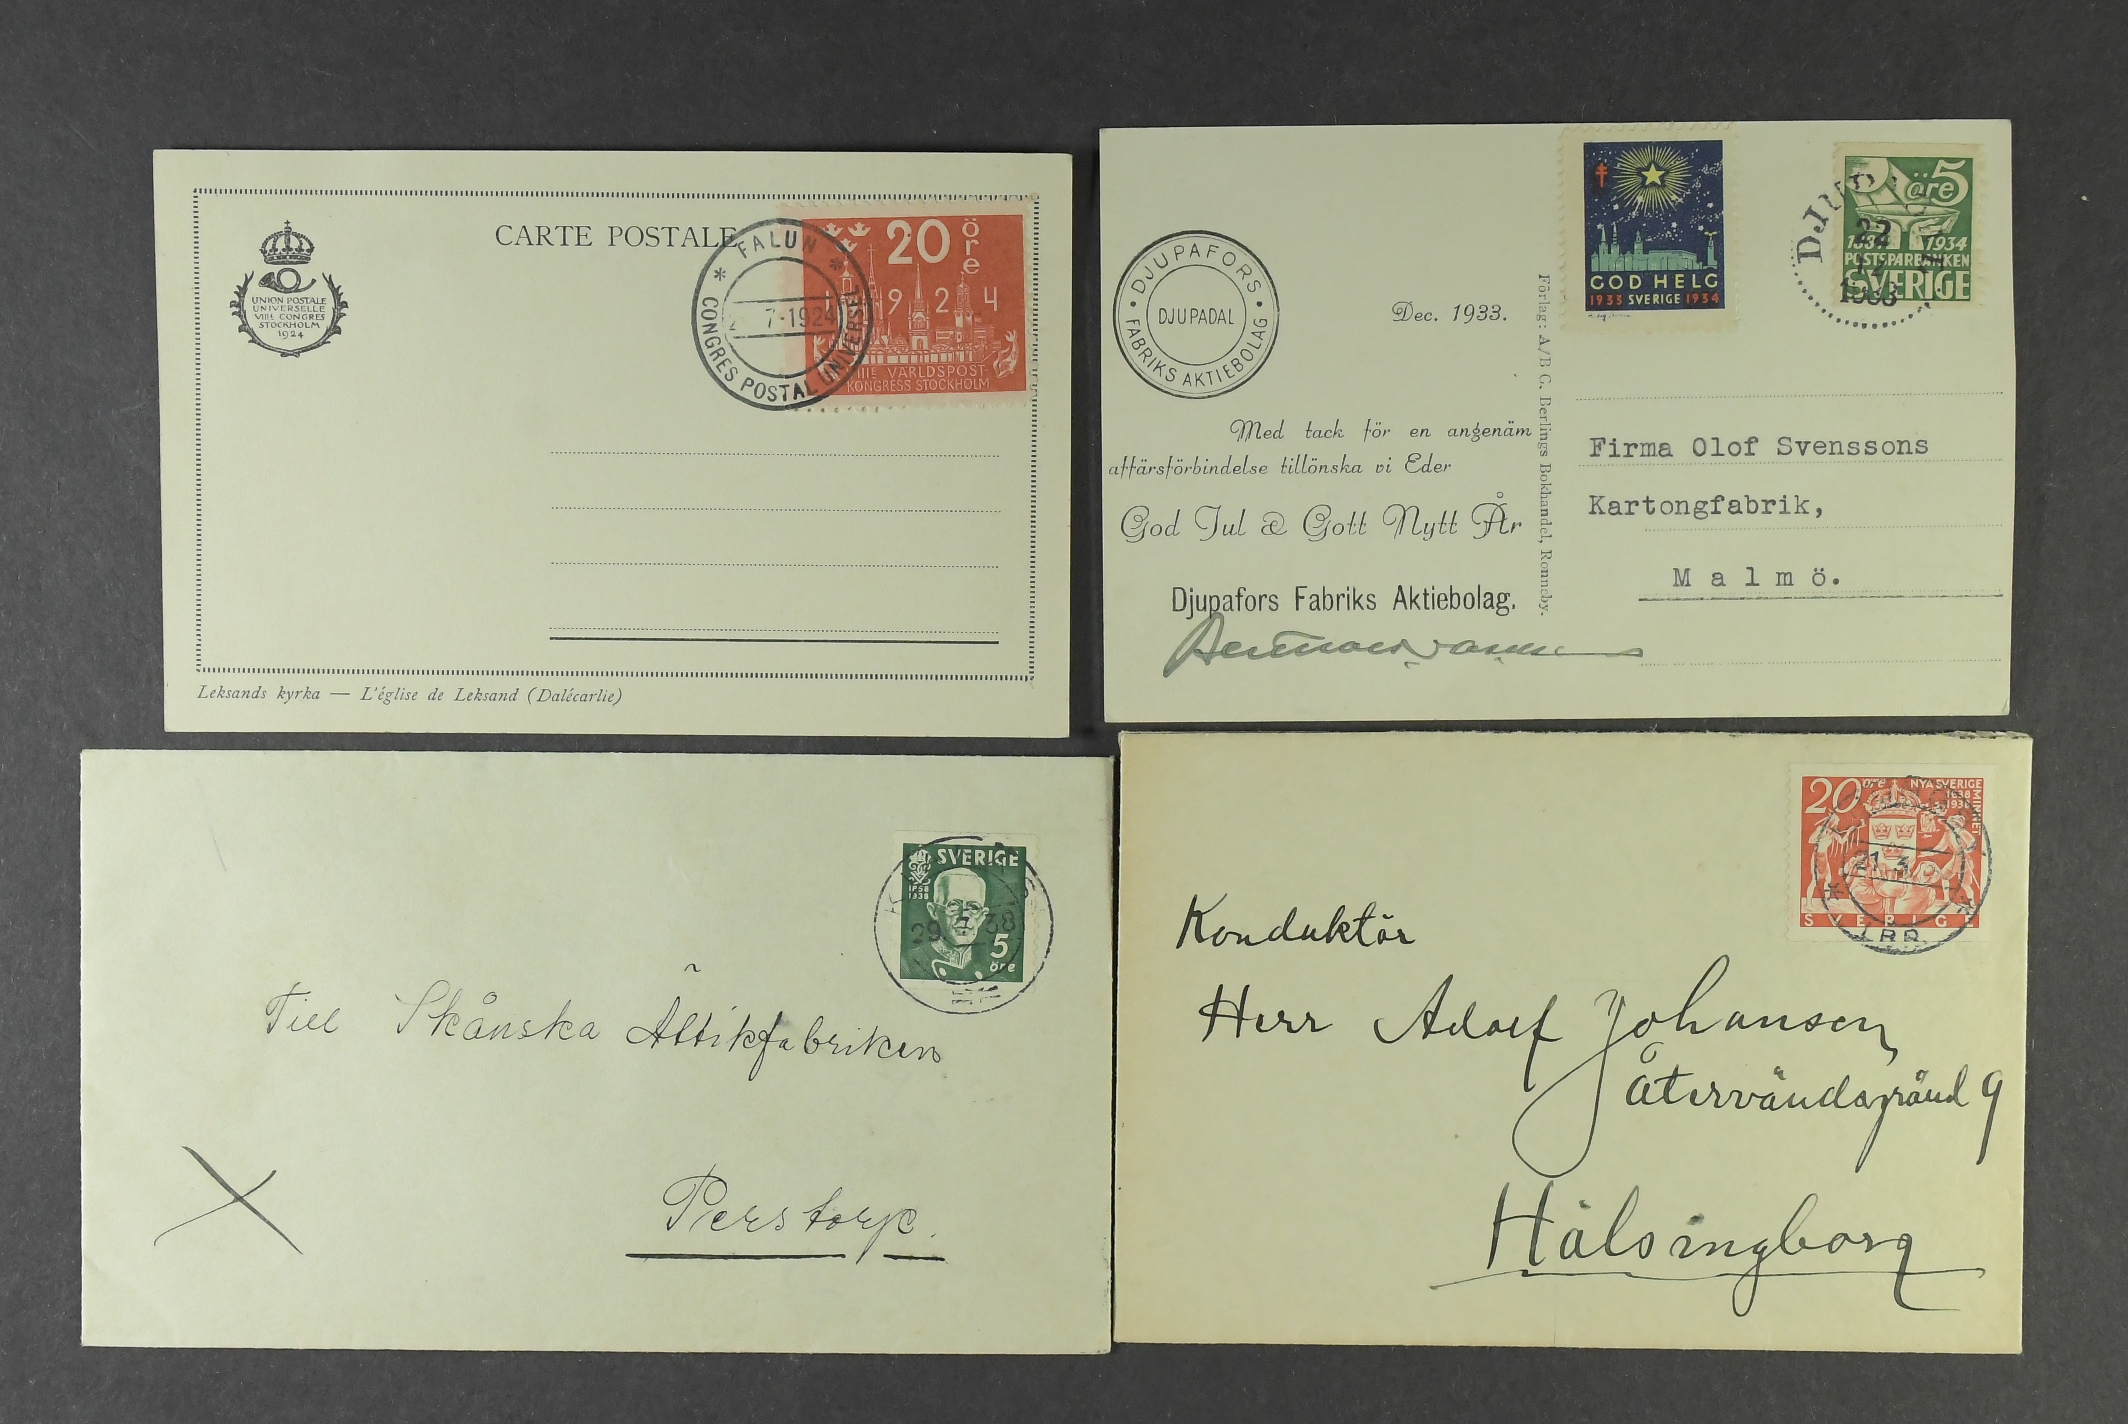 CARTE POSTALE
UNION POSTALE
UNIVERSELLE
VIIIE CONGRÈS
STOCKHOLM
1924
* FALUN *
7-1924
CONGRES POSTAL UNIVERSEL
20 öre
1924
VIIIE VÄRLDSPOST-
KONGRESS STOCKHOLM
Leksands kyrka — L'église de Leksand (Dalécarlie)
DJUPAFORS
DJUPADAL
FABRIKS AKTIEBOLAG
Dec. 1933.
Med tack för en angenäm
affärsförbindelse tillönska vi Eder
God Jul & Gott Nytt År
Djupafors Fabriks Aktiebolag.
Förlag: A/B C. Berlings Bokhandel, Ronneby.
GOD HELG
1933 SVERIGE 1934
5 öre
1934
POSTSPARBANKEN
SVERIGE
22
1933
Firma Olof Svenssons
Kartongfabrik,
Malmö.
SVERIGE
1858
1938
5
öre
29. 38
Till Skånska Ättikfabriken
Perstorp.
20 öre NYA SVERIGE
MINNET
1638
1938
SVERIGE
LBR
Konduktör
Herr Adolf Johansen,
Återvändsgränd 9
Hälsingborg